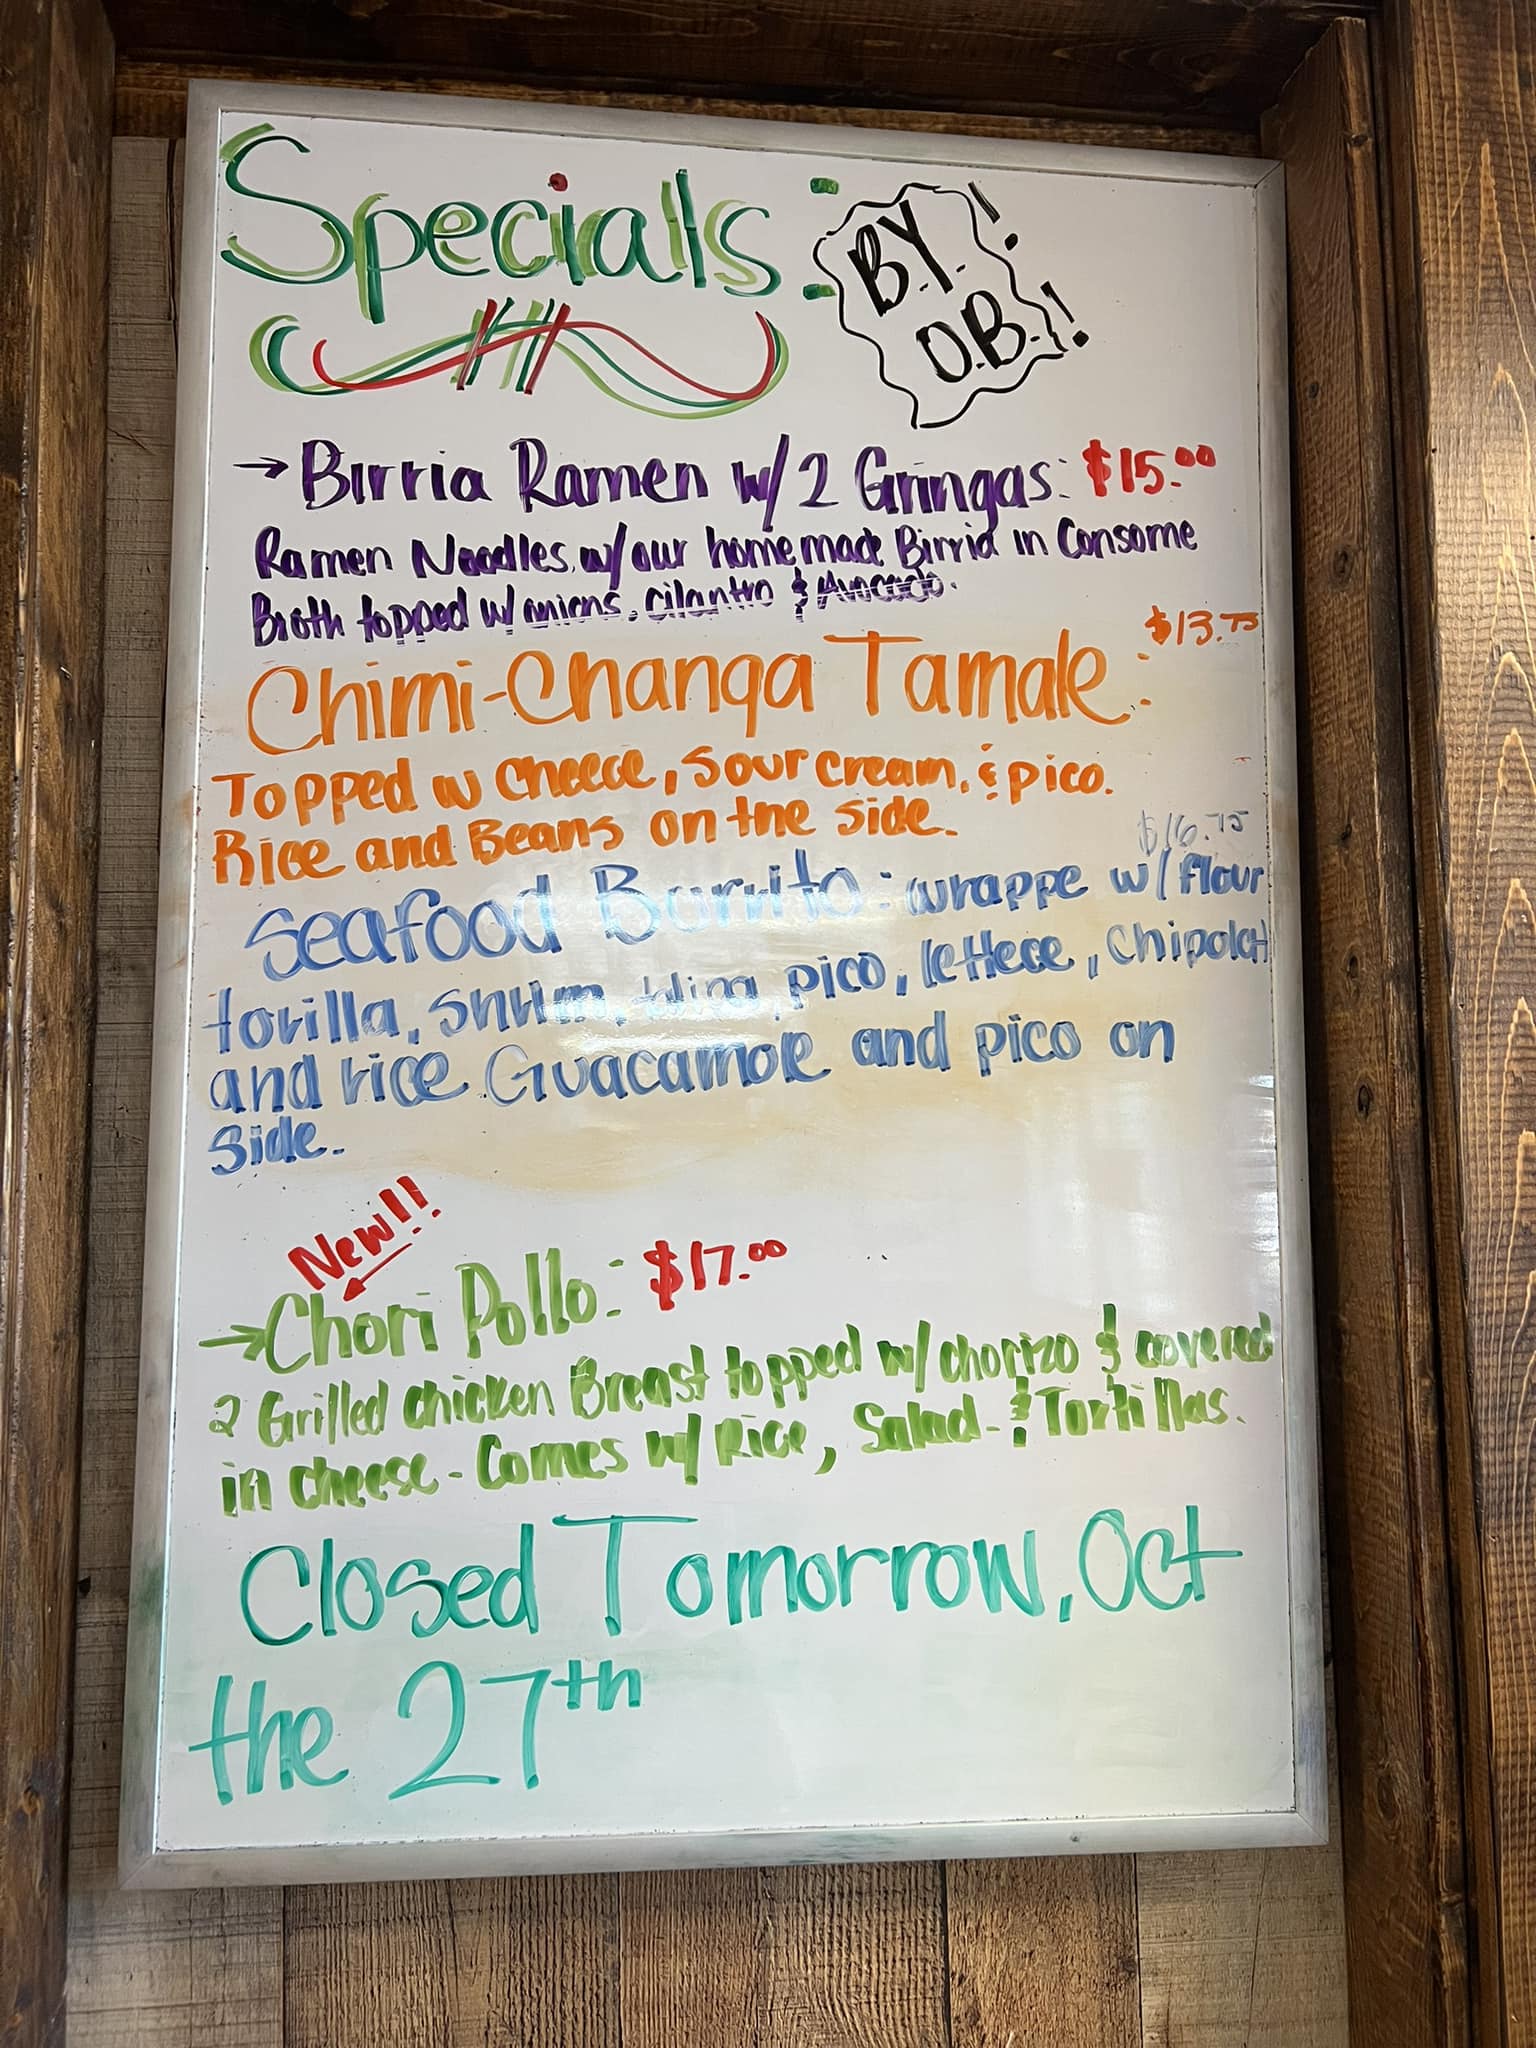 Specials:
B.Y.!
O.B.!
→ Birria Ramen w/2 Gringas: $15.00
Ramen Noodles w/our homemade Birria in Consome
Broth topped w/ onions, cilantro & Avocado.
$13.75
Chimi-Changa Tamale:
Topped w cheece, sour cream, & pico.
Rice and Beans on the side.
$16.75
Seafood Burrito: wrappe w/ flour
torilla, shrim, pico, lettece, chipolet
and rice Guacamole and pico on
side.
New!!
→ Chori Pollo: $17.00
2 Grilled chicken Breast topped w/ chorizo & covered
in cheese - Comes w/ Rice, Salad - & Tortillas.
Closed Tomorrow, Oct
the 27th